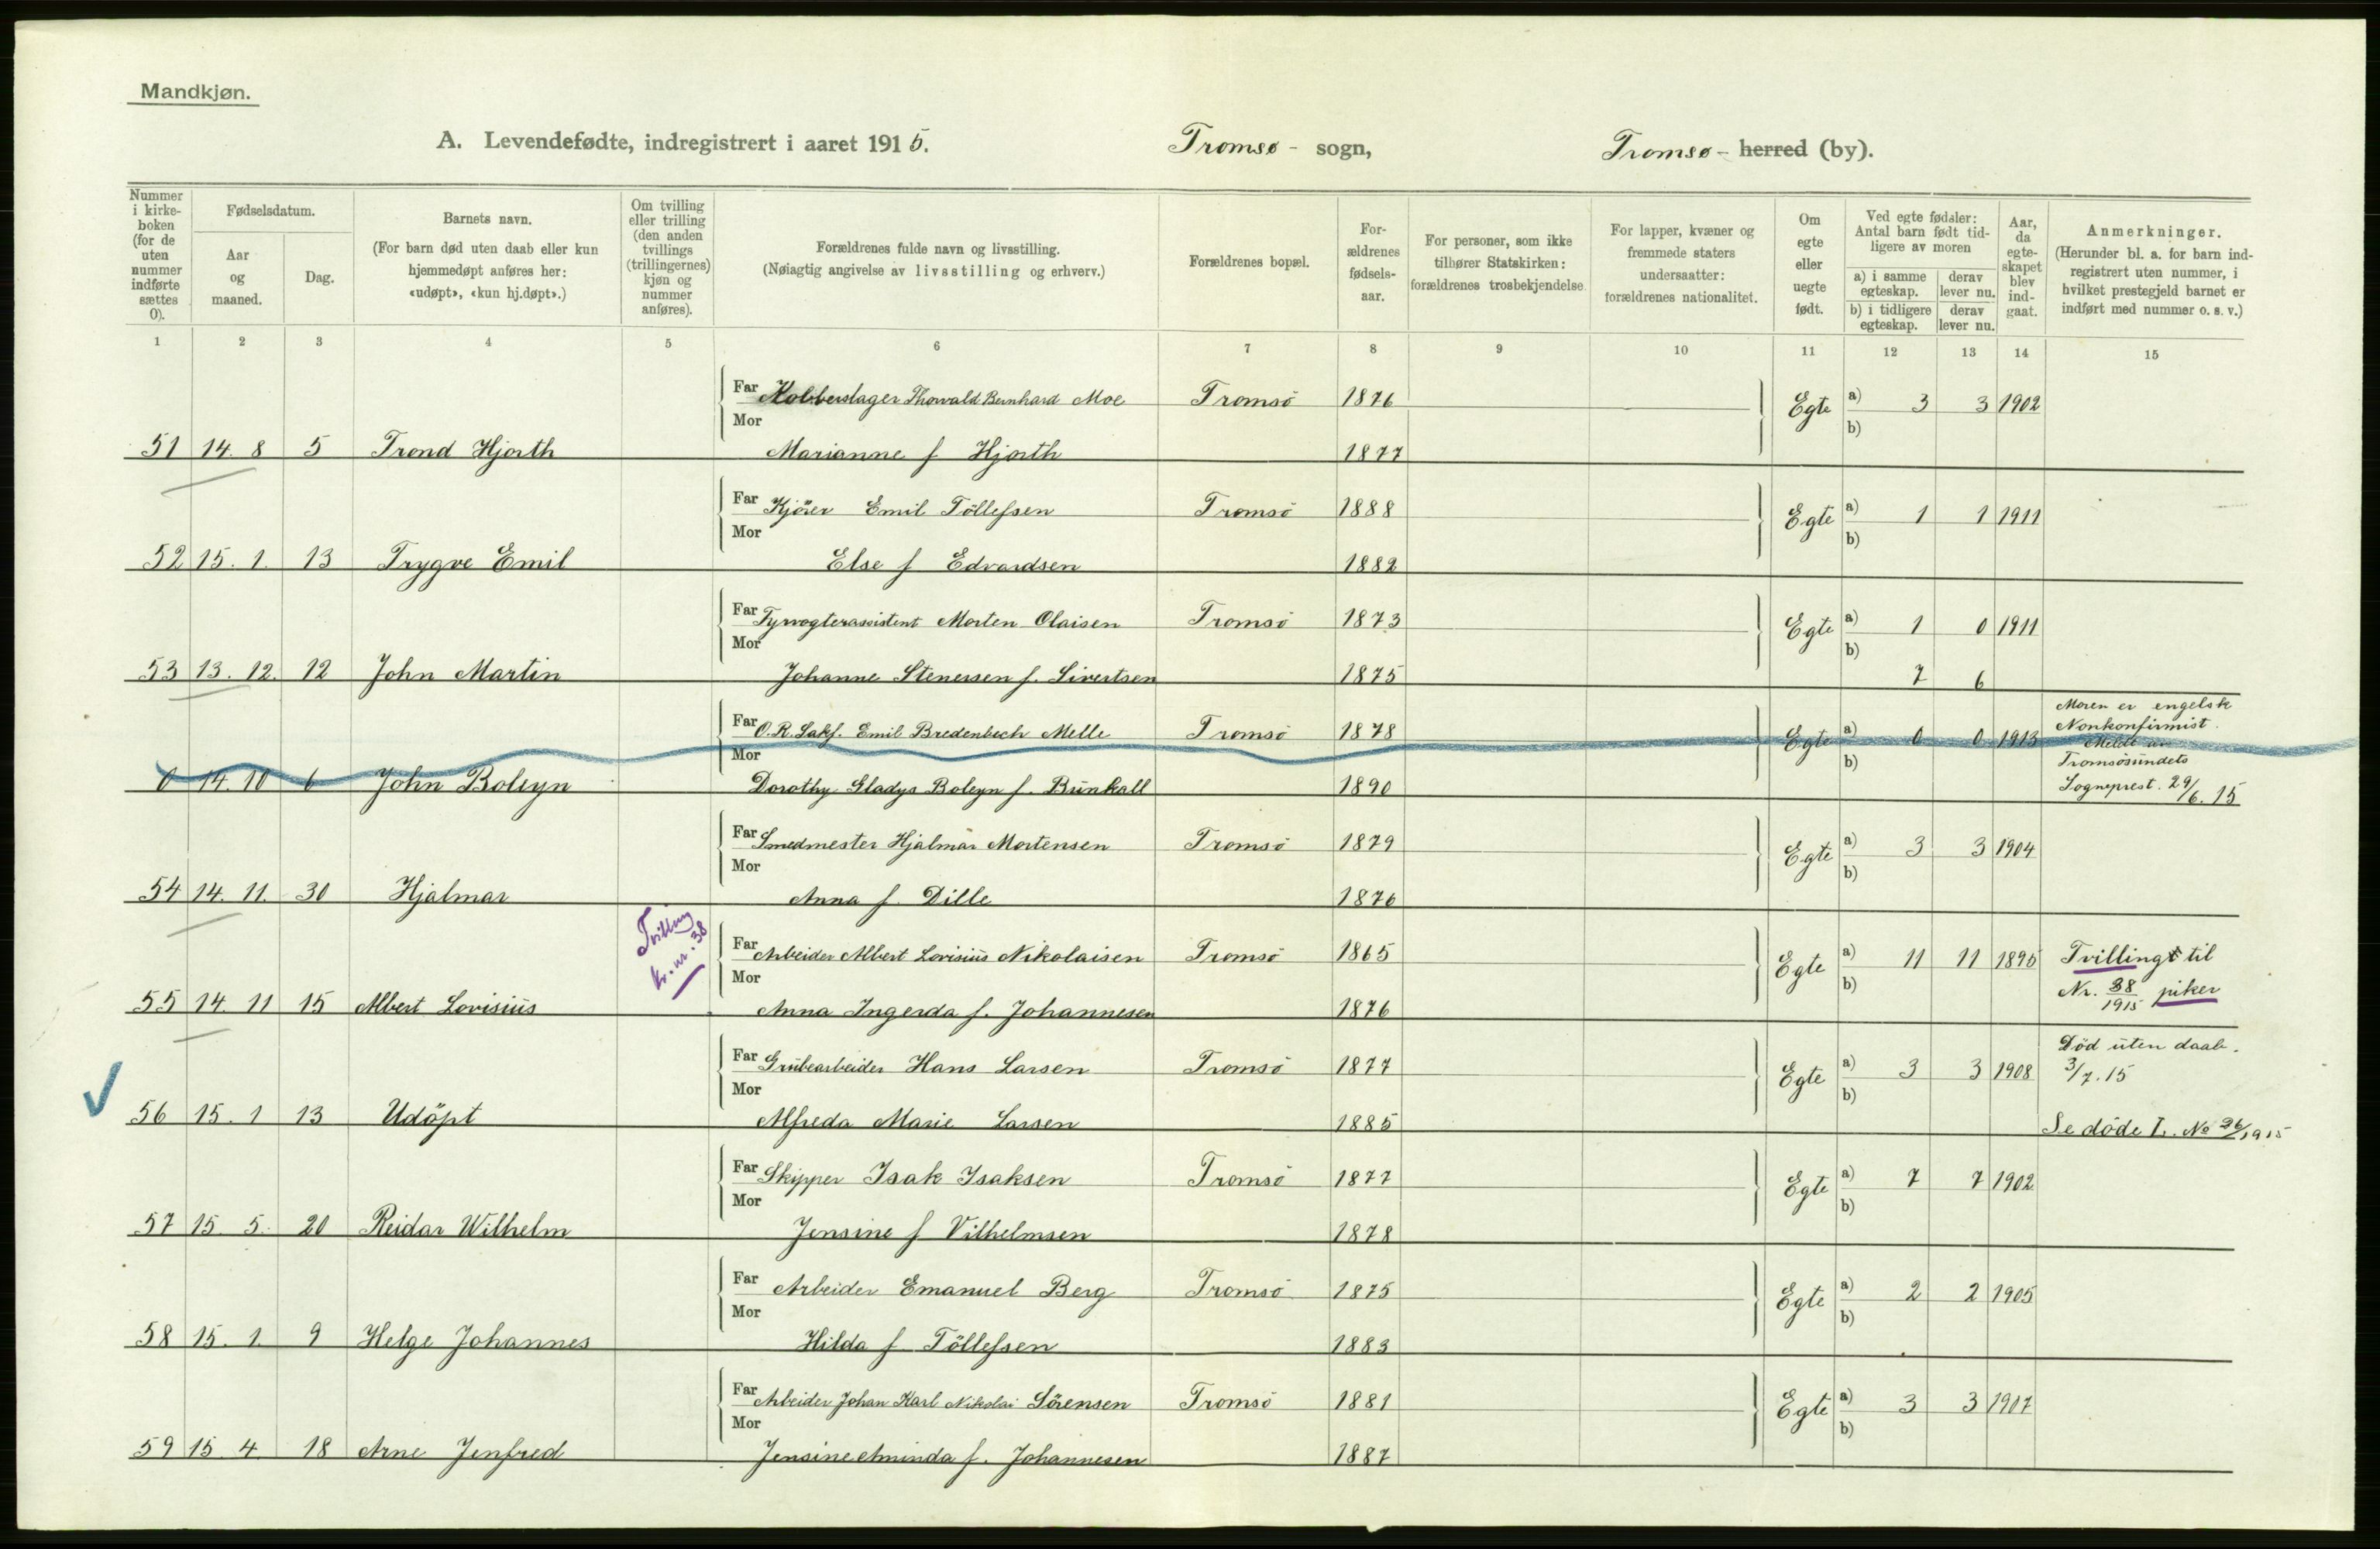 Mandkjøn.
A. Levendefødte, indregistrert i aaret 1915. Tromsø - sogn, Tromsø - herred (by).
Nummer i kirkeboken (for de uten nummer indførte sættes 0).
Fødselsdatum.
Aar og maaned.
Dag.
Barnets navn.
(For barn død uten daab eller kun hjemmedøpt anføres her: «udøpt», «kun hj.døpt».)
Om tvilling eller trilling (den anden tvillings (trillingernes) kjøn og nummer anføres).
Forældrenes fulde navn og livsstilling.
(Nøiagtig angivelse av livsstilling og erhverv.)
Forældrenes bopæl.
Forældrenes fødselsaar.
For personer, som ikke tilhører Statskirken: forældrenes trosbekjendelse.
For lapper, kvæner og fremmede staters undersaatter: forældrenes nationalitet.
Om egte eller uegte født.
Ved egte fødsler: Antal barn født tidligere av moren
a) i samme egteskap. derav lever nu.
b) i tidligere egteskap. derav lever nu.
Aar, da egteskapet blev indgaat.
Anmerkninger.
(Herunder bl. a. for barn indregistrert uten nummer, i hvilket prestegjeld barnet er indført med nummer o. s. v.)
1 2 3 4 5 6 7 8 9 10 11 12 13 14 15
Far Kobberslager Thorvald Bernhard Moe Tromsö 1876 Egte a) 3 3 1902
Mor b)
51 14. 8 5 Trond Hjorth Marianne f Hjorth 1877
Far Kjörer Emil Töllefsen Tromsö 1888 Egte a) 1 1 1911
Mor b)
52 15. 1. 13 Trygve Emil Else f Edvardsen 1882
Far Fyrvogterassistent Morten Olaisen Tromsö 1873 Egte a) 1 0 1911
Mor b)
53 13. 12. 12 John Martin Johanne Stenersen f. Sivertsen 1875 7 6
Far O.R. Sakf. Emil Bredenbech Melle Tromsö 1878 Egte a) 0 0 1913 Moren er engelsk
Nonkonfirmist.
Mor b) Meldt av
Tromsösundets
0 14. 10 6 John Boleyn Dorothy Gladys Boleyn f. Bünkall 1890 Sogneprest. 29/6. 15
Far Smedmester Hjalmar Mortensen Tromsö 1879 Egte a) 3 3 1904
Mor b)
54 14. 11. 30 Hjalmar Anna f. Dille 1876
Tvilling
kv. nr. 38
Far Arbeider Albert Lovisiüs Nikolaisen Tromsö 1865 Egte a) 11 11 1895 Tvilling til
Mor b) Nr. 38/1915 piker
55 14. 11 15 Albert Lovisiüs Anna Ingerda f. Johannesen 1876
Far Grübearbeider Hans Larsen Tromsö 1877 Egte a) 3 3 1908 Död üten daab.
Mor b) 3/7. 15
56 15. 1 13 Udöpt Alfreda Marie Larsen 1885 Se döde I. No 26/1915
Far Skipper Isak Isaksen Tromsö 1877 Egte a) 7 7 1902
Mor b)
57 15. 5. 20 Reidar Wilhelm Jensine f Vilhelmsen 1878
Far Arbeider Emanuel Berg Tromsö 1875 Egte a) 2 2 1905
Mor b)
58 15. 1. 9 Helge Johannes Hilda f Töllefsen 1883
Far Arbeider Johan Karl Nikolai Sörensen Tromsö 1881 Egte a) 3 3 1907
Mor b)
59 15. 4. 18 Arne Jenfred Jensine Aminda f. Johannesen 1887